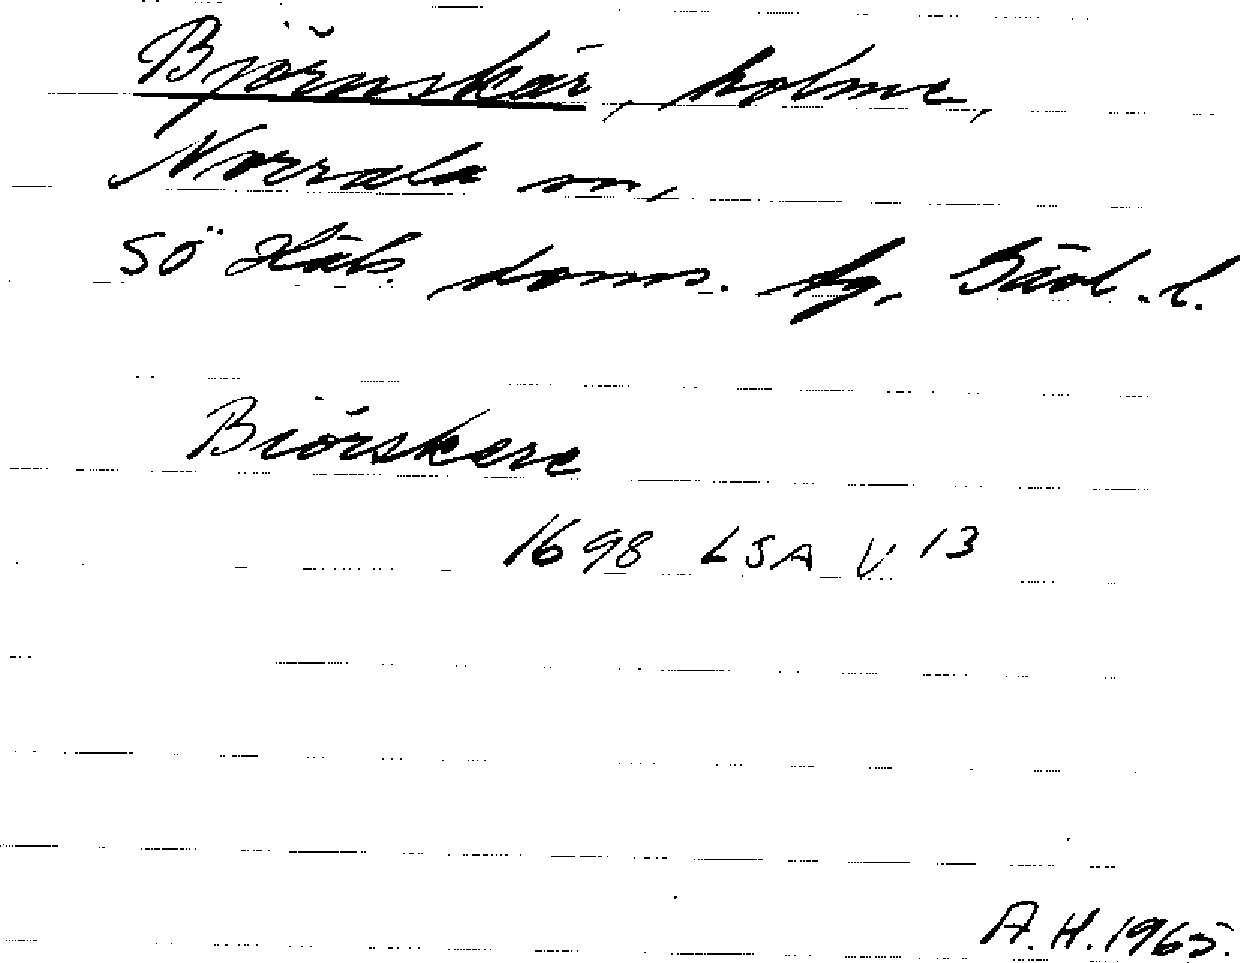 Björnskär, holme,
Norrala sn,
Sö Häls. doms. tg, Gävl. l.
Biörskere
1698 LSA V 13
A. H. 1965.